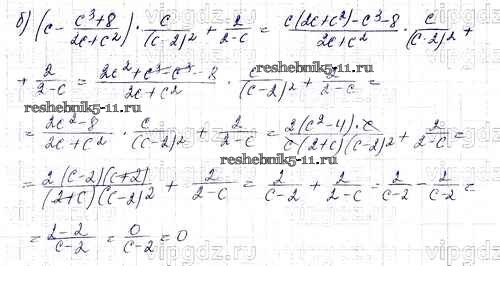 б) (c - (c³+8)/(2c+c²)) · c/(c-2)² + 2/(2-c) = (c(2c+c²)-c³-8)/(2c+c²) · c/(c-2)² +
+ 2/(2-c) = (2c²+c³-c³-8)/(2c+c²) · c/(c-2)² + 2/(2-c) =
= (2c²-8)/(2c+c²) · c/(c-2)² + 2/(2-c) = (2(c²-4)·c)/(c(2+c)(c-2)²) + 2/(2-c) =
= (2(c-2)(c+2))/((2+c)(c-2)²) + 2/(2-c) = 2/(c-2) + 2/(2-c) = 2/(c-2) - 2/(c-2) =
= (2-2)/(c-2) = 0/(c-2) = 0
reshebnik5-11.ru
reshebnik5-11.ru
reshebnik5-11.ru
vipgdz.ru